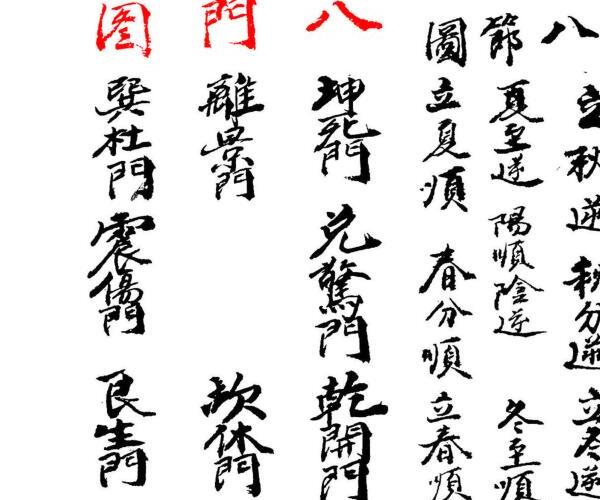 八
立秋逆
秋分逆
立冬逆
節
夏至逆
陽順陰逆
冬至順
圖
立夏順
春分順
立春順
八
坤死門
兌驚門
乾開門
門
離景門
坎休門
图
巽杜門
震傷門
艮生門